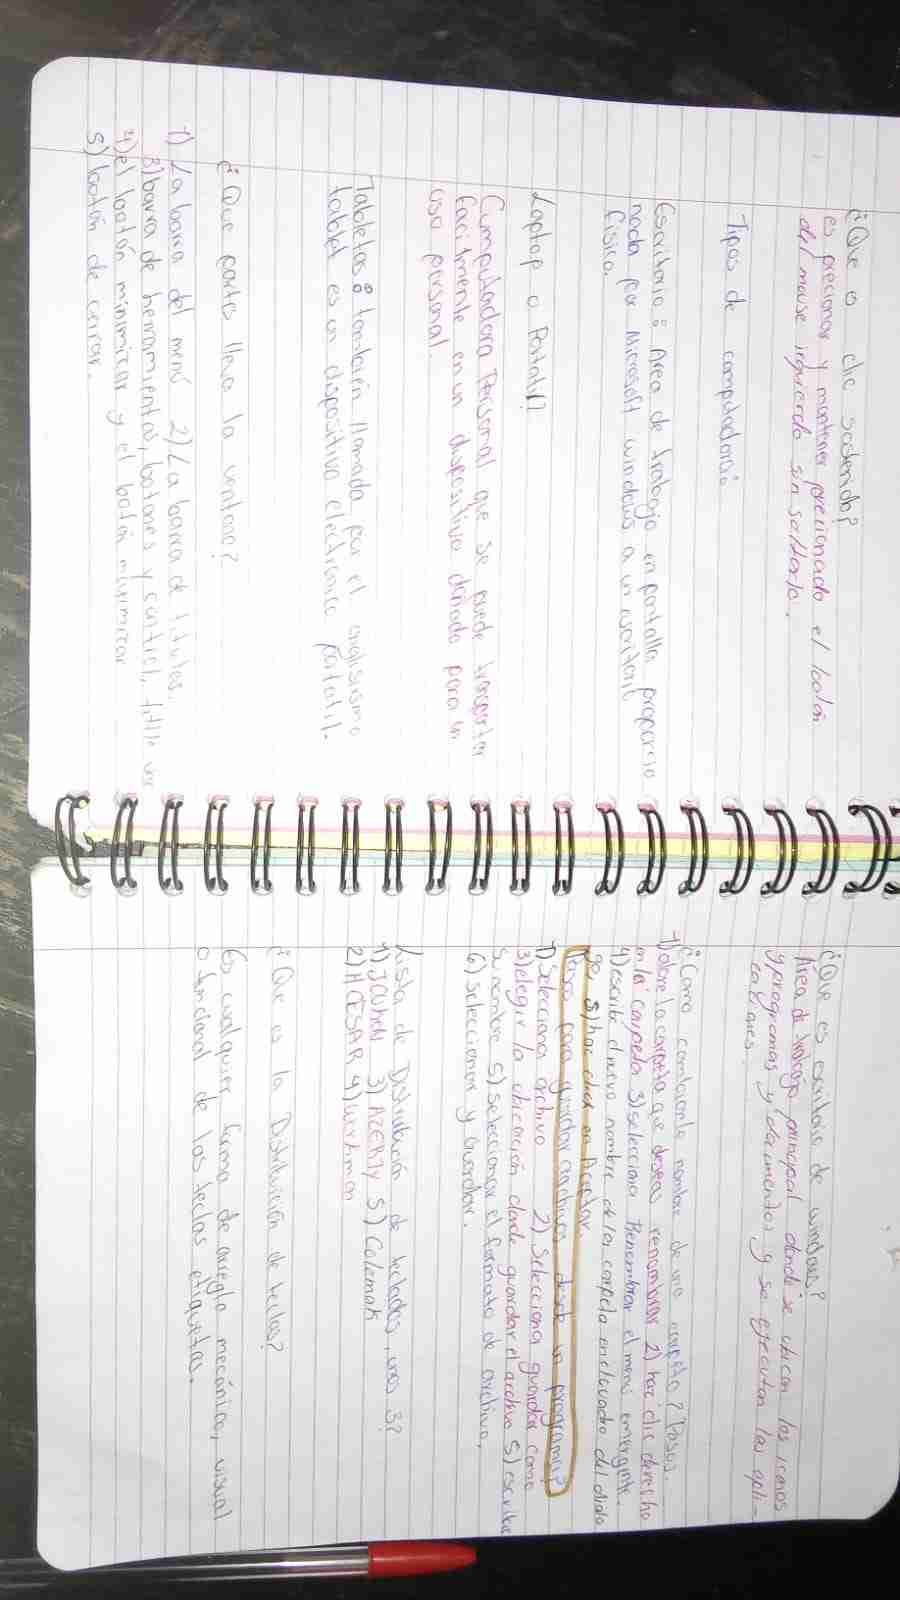 ¿Que es clic sostenido?
es precionar y mantener precionado el botón
del mouse izquierdo sin soltarlo.
Tipos de computadoras
Escritorio: Area de trabajo en pantalla proporcio
nada por Microsoft windows a un escritorio
físico.
Laptop o Portatil
Computadora Personal que se puede transportar
facilmente en un dispositivo diseñado para un
uso personal.
Tabletas: también llamada por el
tablet es un dispositivo electronico portatil.
¿Que partes lleva la ventana?
1) La barra del menú 2) La barra de titulos.
3) barra de herramientas, botones y control,
4) el botón minimizar y el botón maximizar
5) botón de cerrar.
¿Que es escritorio de windows?
Area de trabajo principal donde se ubican los iconos
y programas y documentos y se ejecutan las apli-
caciones.
¿Como cambiar el nombre de una carpeta? Pasos.
1) abre la carpeta que deseas renombrar 2) haz clic derecho
en la carpeta 3) selecciona Renombrar el menú emergente.
4) escribe el nuevo nombre de la carpeta en el cuadro del dialo
go, 5) haz click en Aceptar.
Pasos para guardar archivos desde un programa?
1) Selecciona archivo 2) Selecciona guardar como
3) elegir la ubicación donde guardar el archivo 5) escribe
su nombre 5) seleccionar el formato de archivo.
6) Seleccionar y Guardar.
Lista de Distribución de teclados, unos 3?
1) JCUKEN 3) AZERTY 5) Colemak
2) HCESAR 4) workman
¿Que es la Distribución de teclas?
Es cualquier forma de arreglo mecánico, visual
o funcional de las teclas etiquetas.